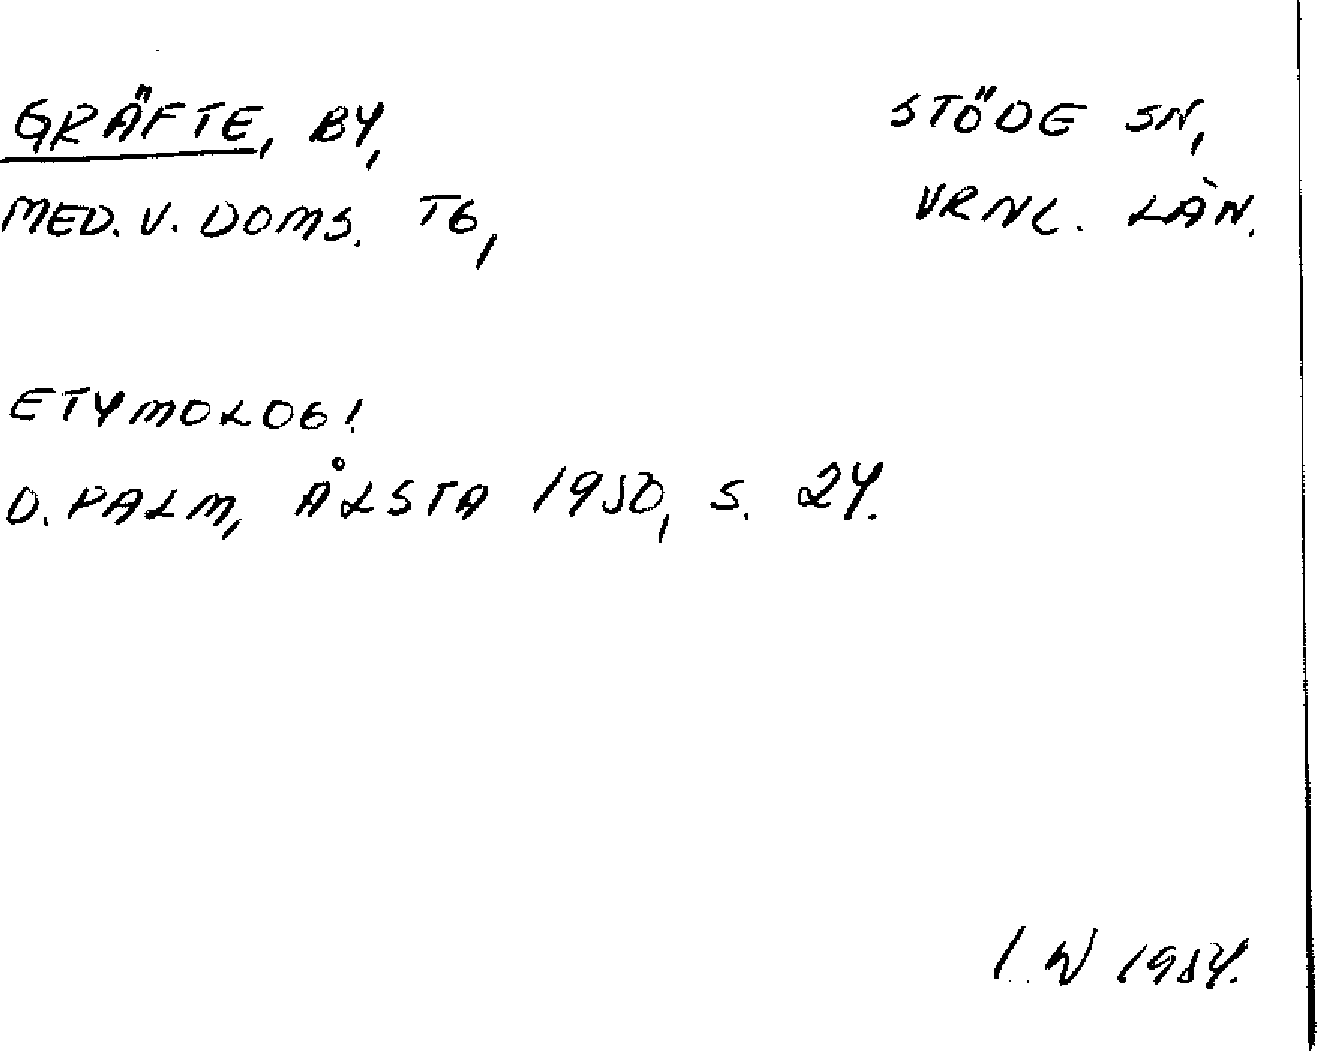 GRÄFTE, BY, STÖDE SN,
MED. V. DOMS. TG, VRNL. LÄN.
ETYMOLOGI
D. PALM, ÅLSTA 1950, S. 24.
I. W 1954.